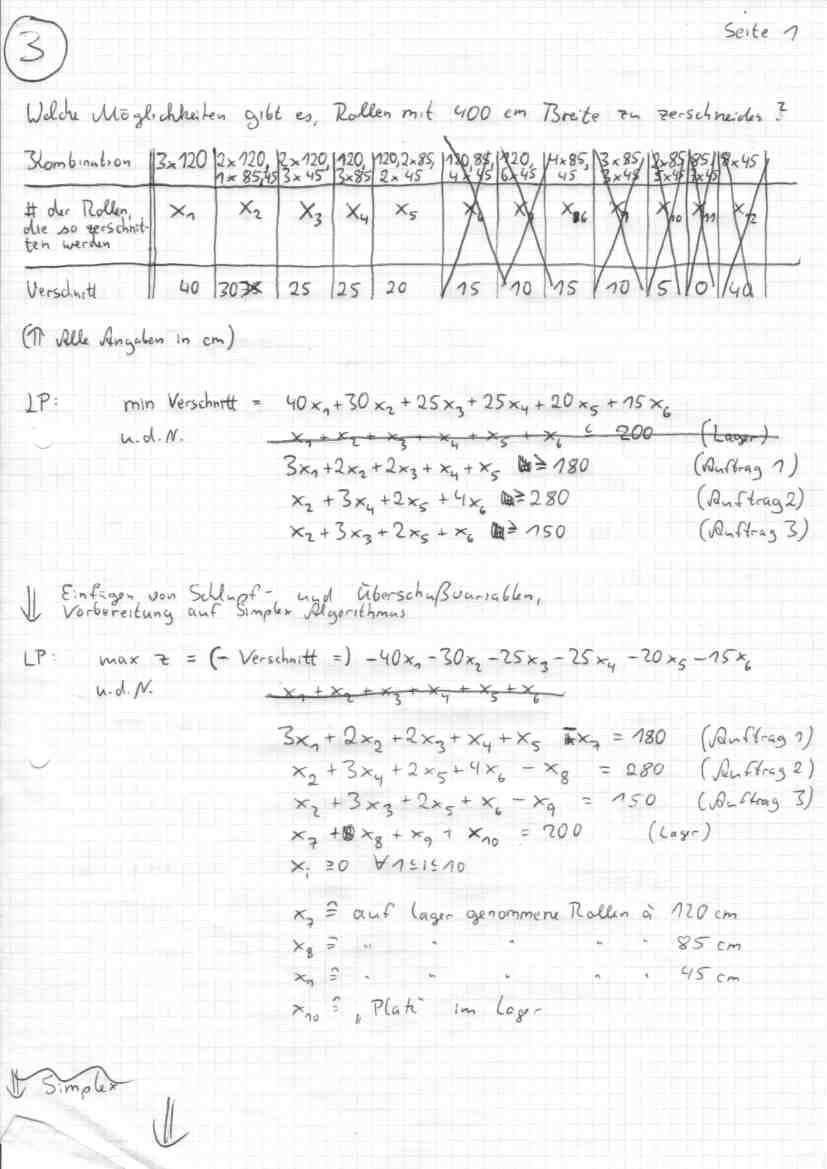 Seite 1
3
Welche Möglichkeiten gibt es, Rollen mit 400 cm Breite zu zerschneiden?
Kombination 3x120 2x120, 2x120, 120, 120,2x85, 120,85, 120, 4x85, 3x85 2x85 85, 8x45
1x85,45 3x45 3x85 2x45 4x45 6x45 45 3x45 5x45 7x45
# der Rollen, x₁ x₂ x₃ x₄ x₅ x₆ x₇ x₆ x₉ x₁₀ x₁₁ x₁₂
die so zerschnit-
ten werden
Verschnitt 40 30 25 25 20 15 10 15 10 5 0 40
(⇑ Alle Angaben in cm)
LP: min Verschnitt = 40x₁+30x₂+25x₃+25x₄+20x₅+15x₆
u.d.N. x₁+x₂+x₃+x₄+x₅+x₆ ≤ 200 (Lager)
3x₁+2x₂+2x₃+x₄+x₅ ≥ 180 (Auftrag 1)
x₂+3x₄+2x₅+4x₆ ≥ 280 (Auftrag 2)
x₂+3x₃+2x₅+x₆ ≥ 150 (Auftrag 3)
⇓ Einfügen von Schlupf- und Überschußvariablen,
Vorbereitung auf Simplex Algorithmus
LP: max z = (- Verschnitt =) -40x₁-30x₂-25x₃-25x₄-20x₅-15x₆
u.d.N. x₁+x₂+x₃+x₄+x₅+x₆
3x₁+2x₂+2x₃+x₄+x₅ -x₇ = 180 (Auftrag 1)
x₂+3x₄+2x₅+4x₆ - x₈ = 280 (Auftrag 2)
x₂+3x₃+2x₅+x₆-x₉ = 150 (Auftrag 3)
x₇+x₈+x₉+x₁₀ = 200 (Lager)
xᵢ ≥0 ∀1≤i≤10
x₇ ≙ auf Lager genommene Rollen à 120 cm
x₈ ≙ " " " " " 85 cm
x₉ ≙ " " " " " 45 cm
x₁₀ ≙ "Platz" im Lager
⇓ Simplex
⇓